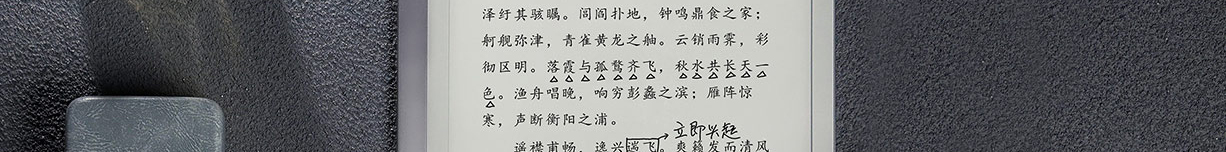 泽纡其骇瞩。闾阎扑地，钟鸣鼎食之家；
舸舰弥津，青雀黄龙之舳。云销雨霁，彩
彻区明。落霞与孤鹜齐飞，秋水共长天一
色。渔舟唱晚，响穷彭蠡之滨；雁阵惊
寒，声断衡阳之浦。
立即兴起
遥襟甫畅，逸兴遄飞。爽籁发而清风